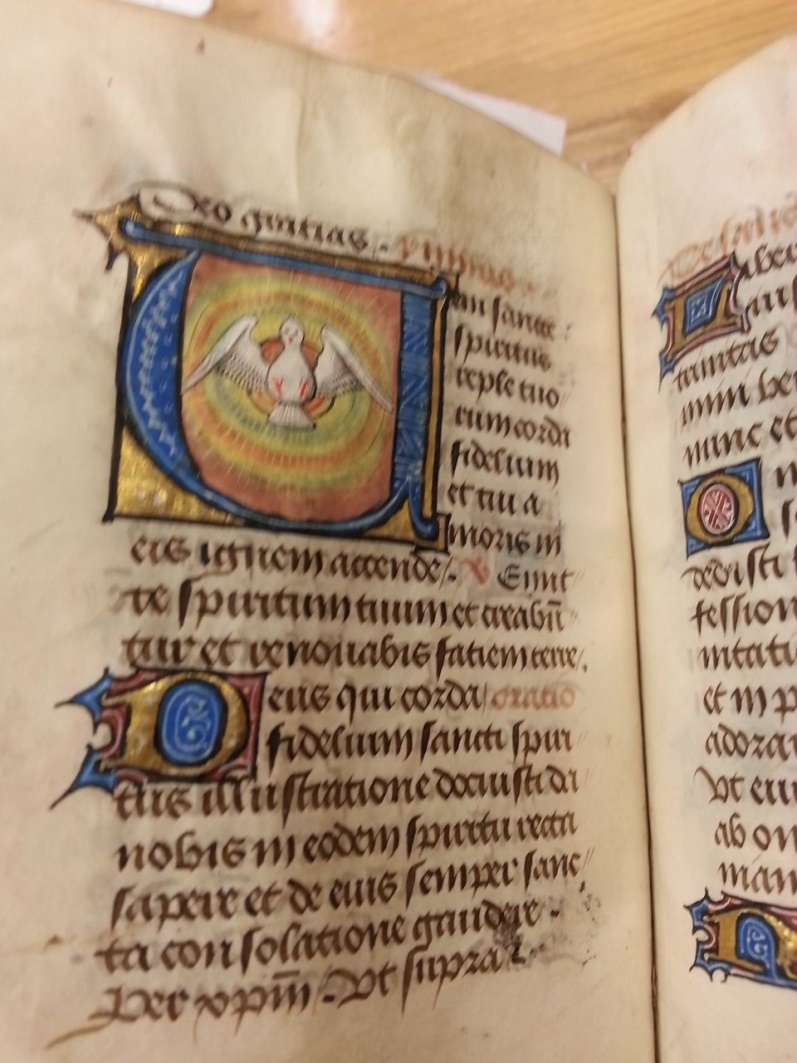 Deo gratias.
Veni sancte
spiritus
reple tuo
rum corda
fidelium
et tui a
moris in
eis ignem accende. V Emit
te spiritum tuum et creabū
tur et renovabis faciem terre.
Deus qui corda oratio
fidelium sancti spiri
tus illustratione docuisti da
nobis in eodem spiritu recta
sapere et de eius semper sanc
ta consolatione gaudere.
Per xpm̄. Ut supra.
tunitas
nunc et
dedisti
fession
et in p
adorar
ut eiu
ab on